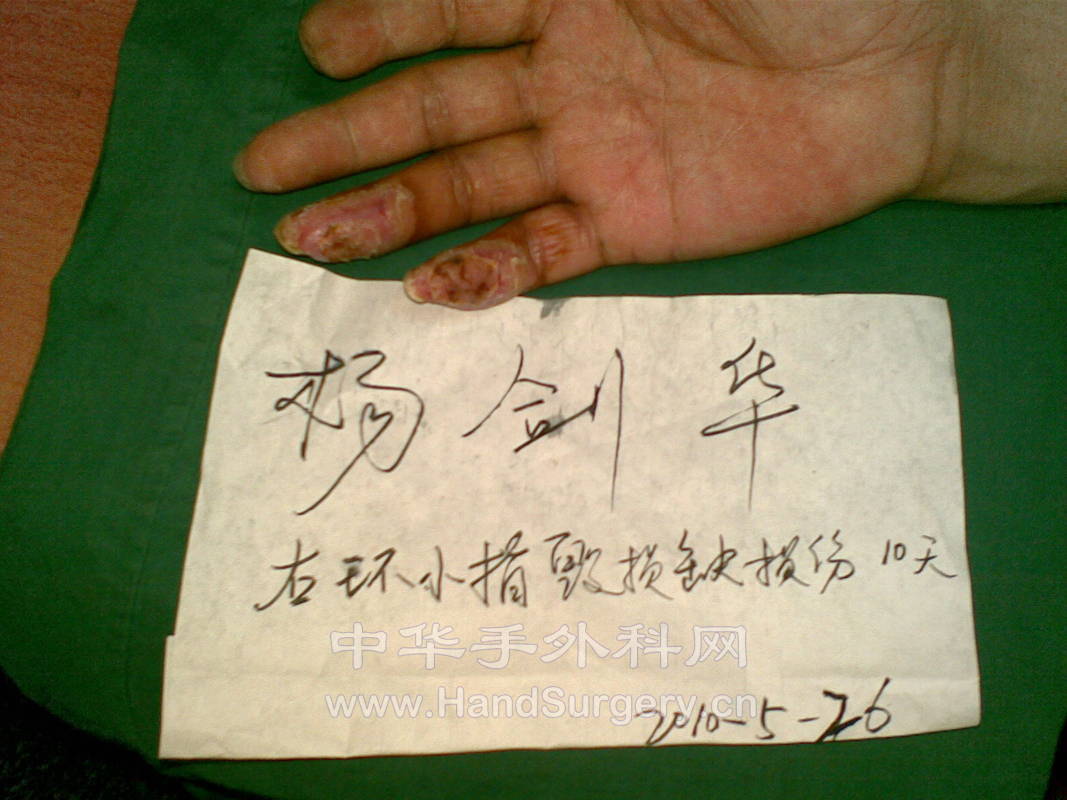 杨剑华
右环小指毁损缺损伤 10天
中华手外科网
www.HandSurgery.cn
2010-5-26